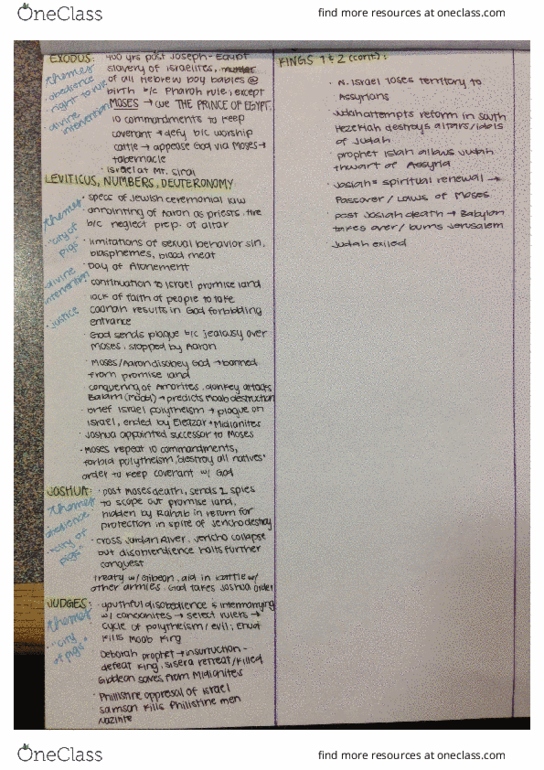 OneClass
find more resources at oneclass.com
EXODUS: 400 yrs post Joseph - Egypt
slavery of israelites, murder
of all Hebrew boy babies @
birth b/c Pharoh rule, except
MOSES → use THE PRINCE OF EGYPT.
10 commandments to keep
covenant → defy b/c worship
cattle → appease God via Moses →
tabernacle
· Israel at Mt. Sinai
themes
· obedience
· right to rule
· divine
intervention
LEVITICUS, NUMBERS, DEUTERONOMY
· specs of Jewish ceremonial law
· annointing of Aaron as priests, fire
b/c neglect prep. of altar
· limitations of sexual behavior sin,
blasphemes, blood meat
· Day of Atonement
· continuation to Israel promise land
· lack of faith of people to take
canaan results in God forbidding
entrance
· God sends plague b/c jealousy over
Moses, stopped by Aaron
· Moses/Aaron disobey God → banned
from promise land
conquering of Amorites, donkey attacks
Balam → predicts Moab destruction
· brief Israel polytheism → plague on
Israel, ended by Eleazar + Midianites
· Joshua appointed successor to Moses
· Moses repeat 10 commandments,
forbid polytheism, "destroy all natives"
order to keep covenant w/ God
themes
"city of
pigs"
· divine
intervention
· justice
JOSHUA: · post Moses death, sends 2 spies
to scope out promise land,
hidden by Rahab in return for
protection in spite of Jericho destroy
· cross Jordan River, Jericho collapse
but halts further
conquest
treaty w/ Gibeon, aid in battle w/
other armies. God takes Joshua order
themes
obedience
"city of
pigs"
JUDGES: · youthful disobedience & intermarrying
w/ canaanites → select rulers →
cycle of polytheism/evil; Ehud
kills Moab king
Deborah prophet → insurruction -
defeat king, sisera retreat/killed
Giddean saves from Midianites
· Philistine oppresal of Israel
samson kills Philistine men
themes
"city
of pigs"
KINGS 1 & 2 (cont):
· N. Israel loses territory to
Assyrians
· Judah attempts reform in south
Hezekiah destroys altars/idols
of Judah
· prophet Isiah allows Judah
thwart of Assyria
· Josiah = spiritual renewal →
Passover / Laws of Moses
· post Josiah death → Babylon
takes over / burns Jerusalem
Judah exiled
OneClass
find more resources at oneclass.com